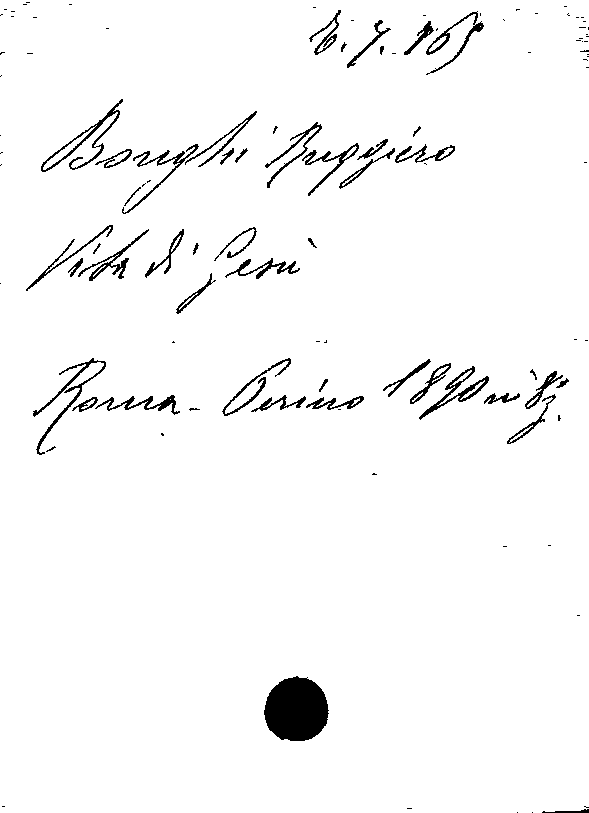 Bonghi Ruggiero
Vita di Gesù
Roma - Perino 1890 in 8°.